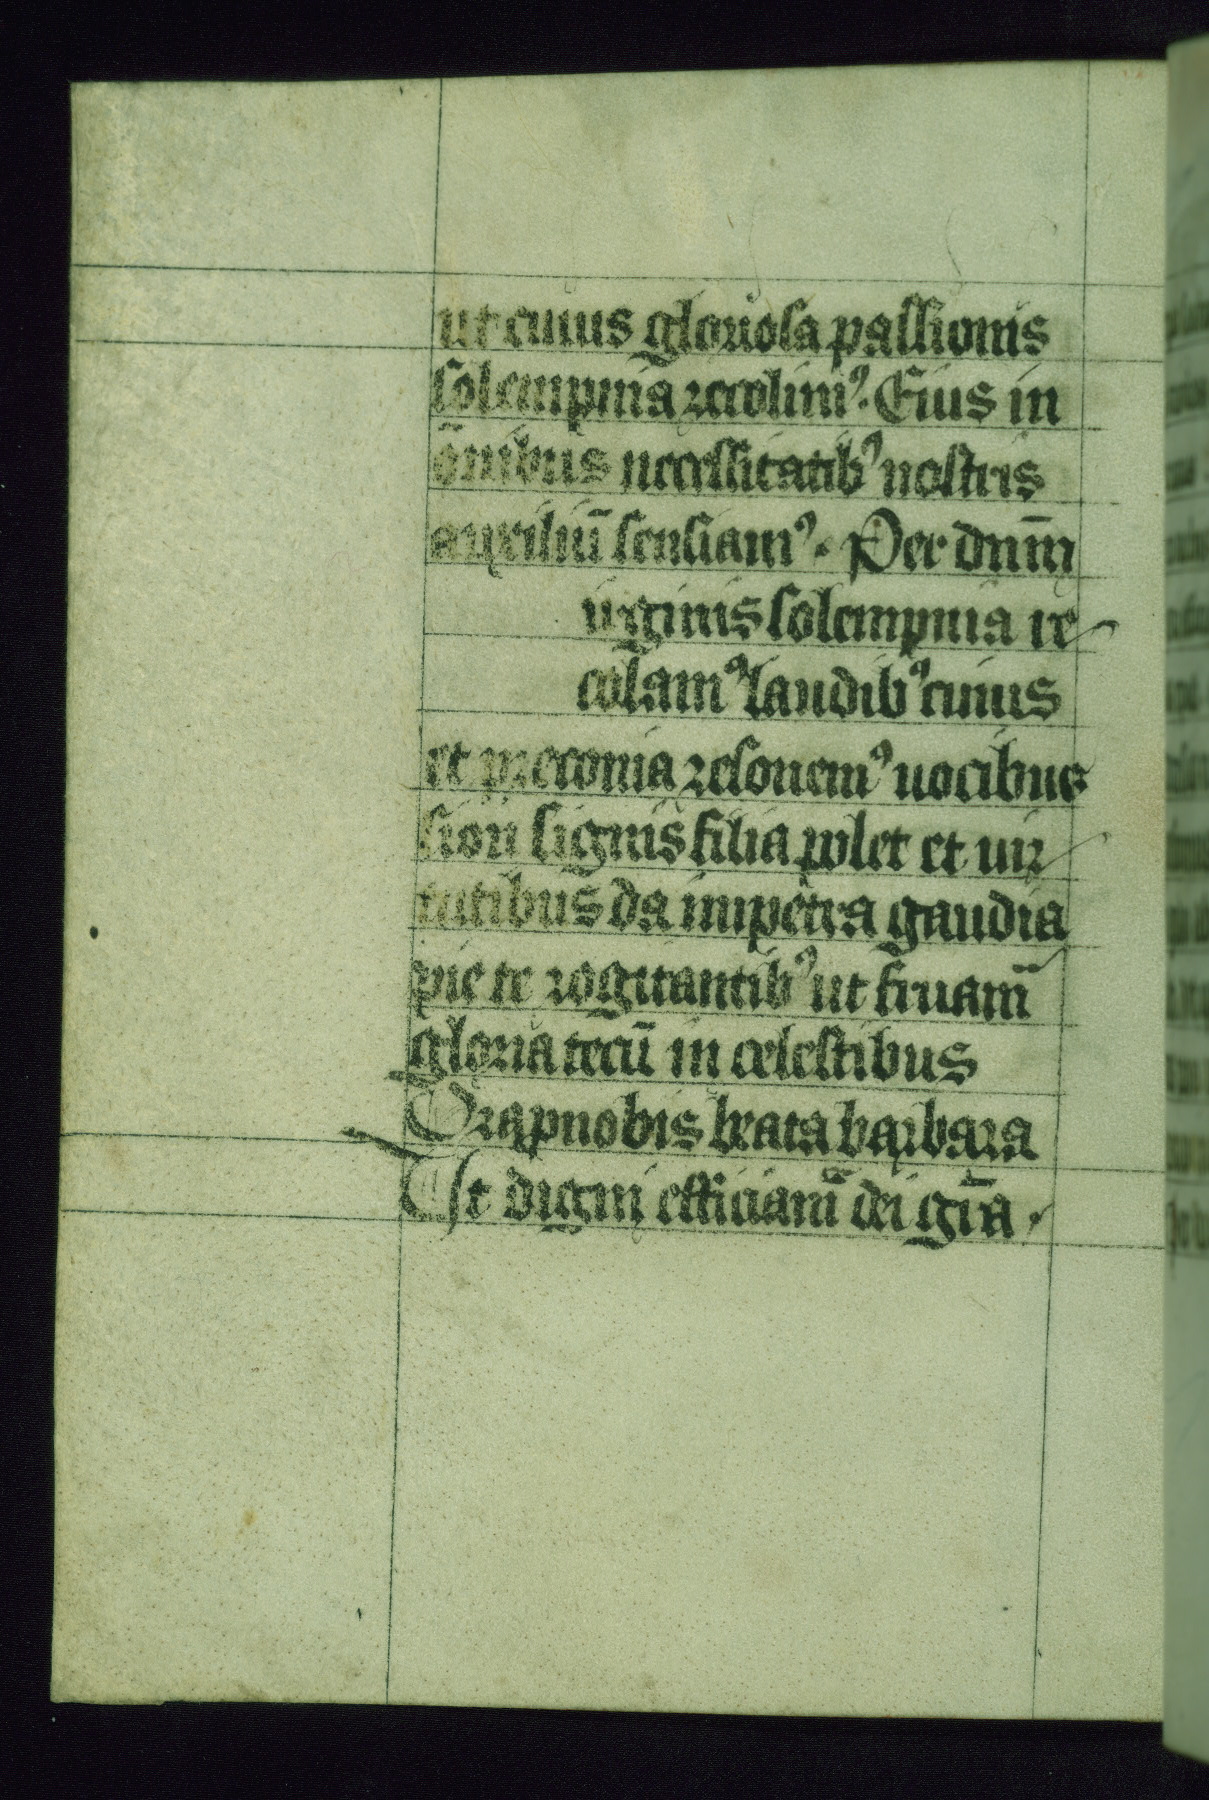 ut cuius gloriosa passionis
solempnia recolimꝰ. Eius in
ōnibus necessitatibꝰ nostris
auxiliū senciamꝰ. Per dnm̄
irginis solempnia re
colamꝰ laudibꝰ cuius
et preconia resonemꝰ uocibus
sion signis filia polet et uir
tutibus da impetra gaudia
pie te rogitantibꝰ ut fruam̄
gloria tecū in celestibus
Ora p nobis beata barbara
Ut digni efficiam̄ dei gr̄a.